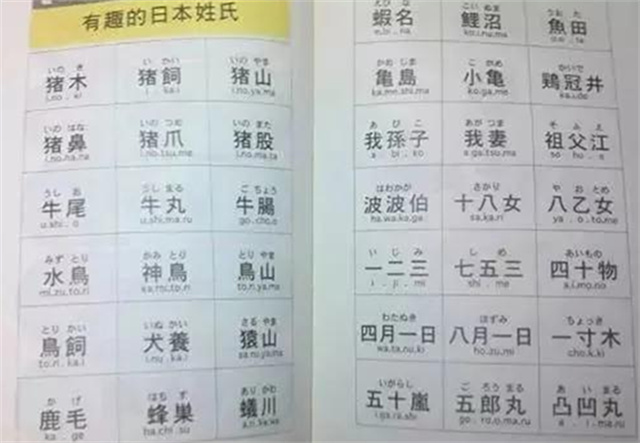 有趣的日本姓氏
いの き いの かい いの やま
猪木 猪飼 猪山
i.no . ki i . ka.i i.no.ya.ma
いの はな いの つめ いの また
猪鼻 猪爪 猪股
i.no.ha.na i.no.tsu.me i.no.ma.ta
うし お うし まる ご ちょう
牛尾 牛丸 牛腸
u.shi . o u.shi.ma.ru go.cho.o
みず とり かみ とり とり やま
水鳥 神鳥 鳥山
mi.zu.to.ri ka.mi.to.ri to.ri.ya.ma
とり かい いぬ かい さる やま
鳥飼 犬養 猿山
to.ri . ka.i i.nu . ka.i sa.ru.ya.ma
か げ はち す あり かわ
鹿毛 蜂巣 蟻川
ka . ge ha.chi . su a.ri.ka.wa
えび な こい ぬま うお た
蝦名 鯉沼 魚田
e.bi . na ko.i.nu.ma
かめ しま こ かめ かいで
亀島 小亀 鶏冠井
ka.me.shi.ma ko.ga.me ka.i.de
あ び こ あが つま そ ふ え
我孫子 我妻 祖父江
a . bi . ko a.ga.tsu.ma so . fu . e
はわかが さかり や おと め
波波伯 十八女 八乙女
ha.wa.ka.ga sa.ka.ri ya . o . to.me
い じ み し め あいもの
一二三 七五三 四十物
i . ji . mi shi . me a.i.mo.no
わたぬき ほずみ ちょっき
四月一日 八月一日 一寸木
wa.ta.nu.ki ho.zu.mi cho.k.ki
いがらし ご ろう まる あ い まる
五十嵐 五郎丸 凸凹丸
i.ga.ra.shi go.ro.o.ma.ru a . i.ma.ru